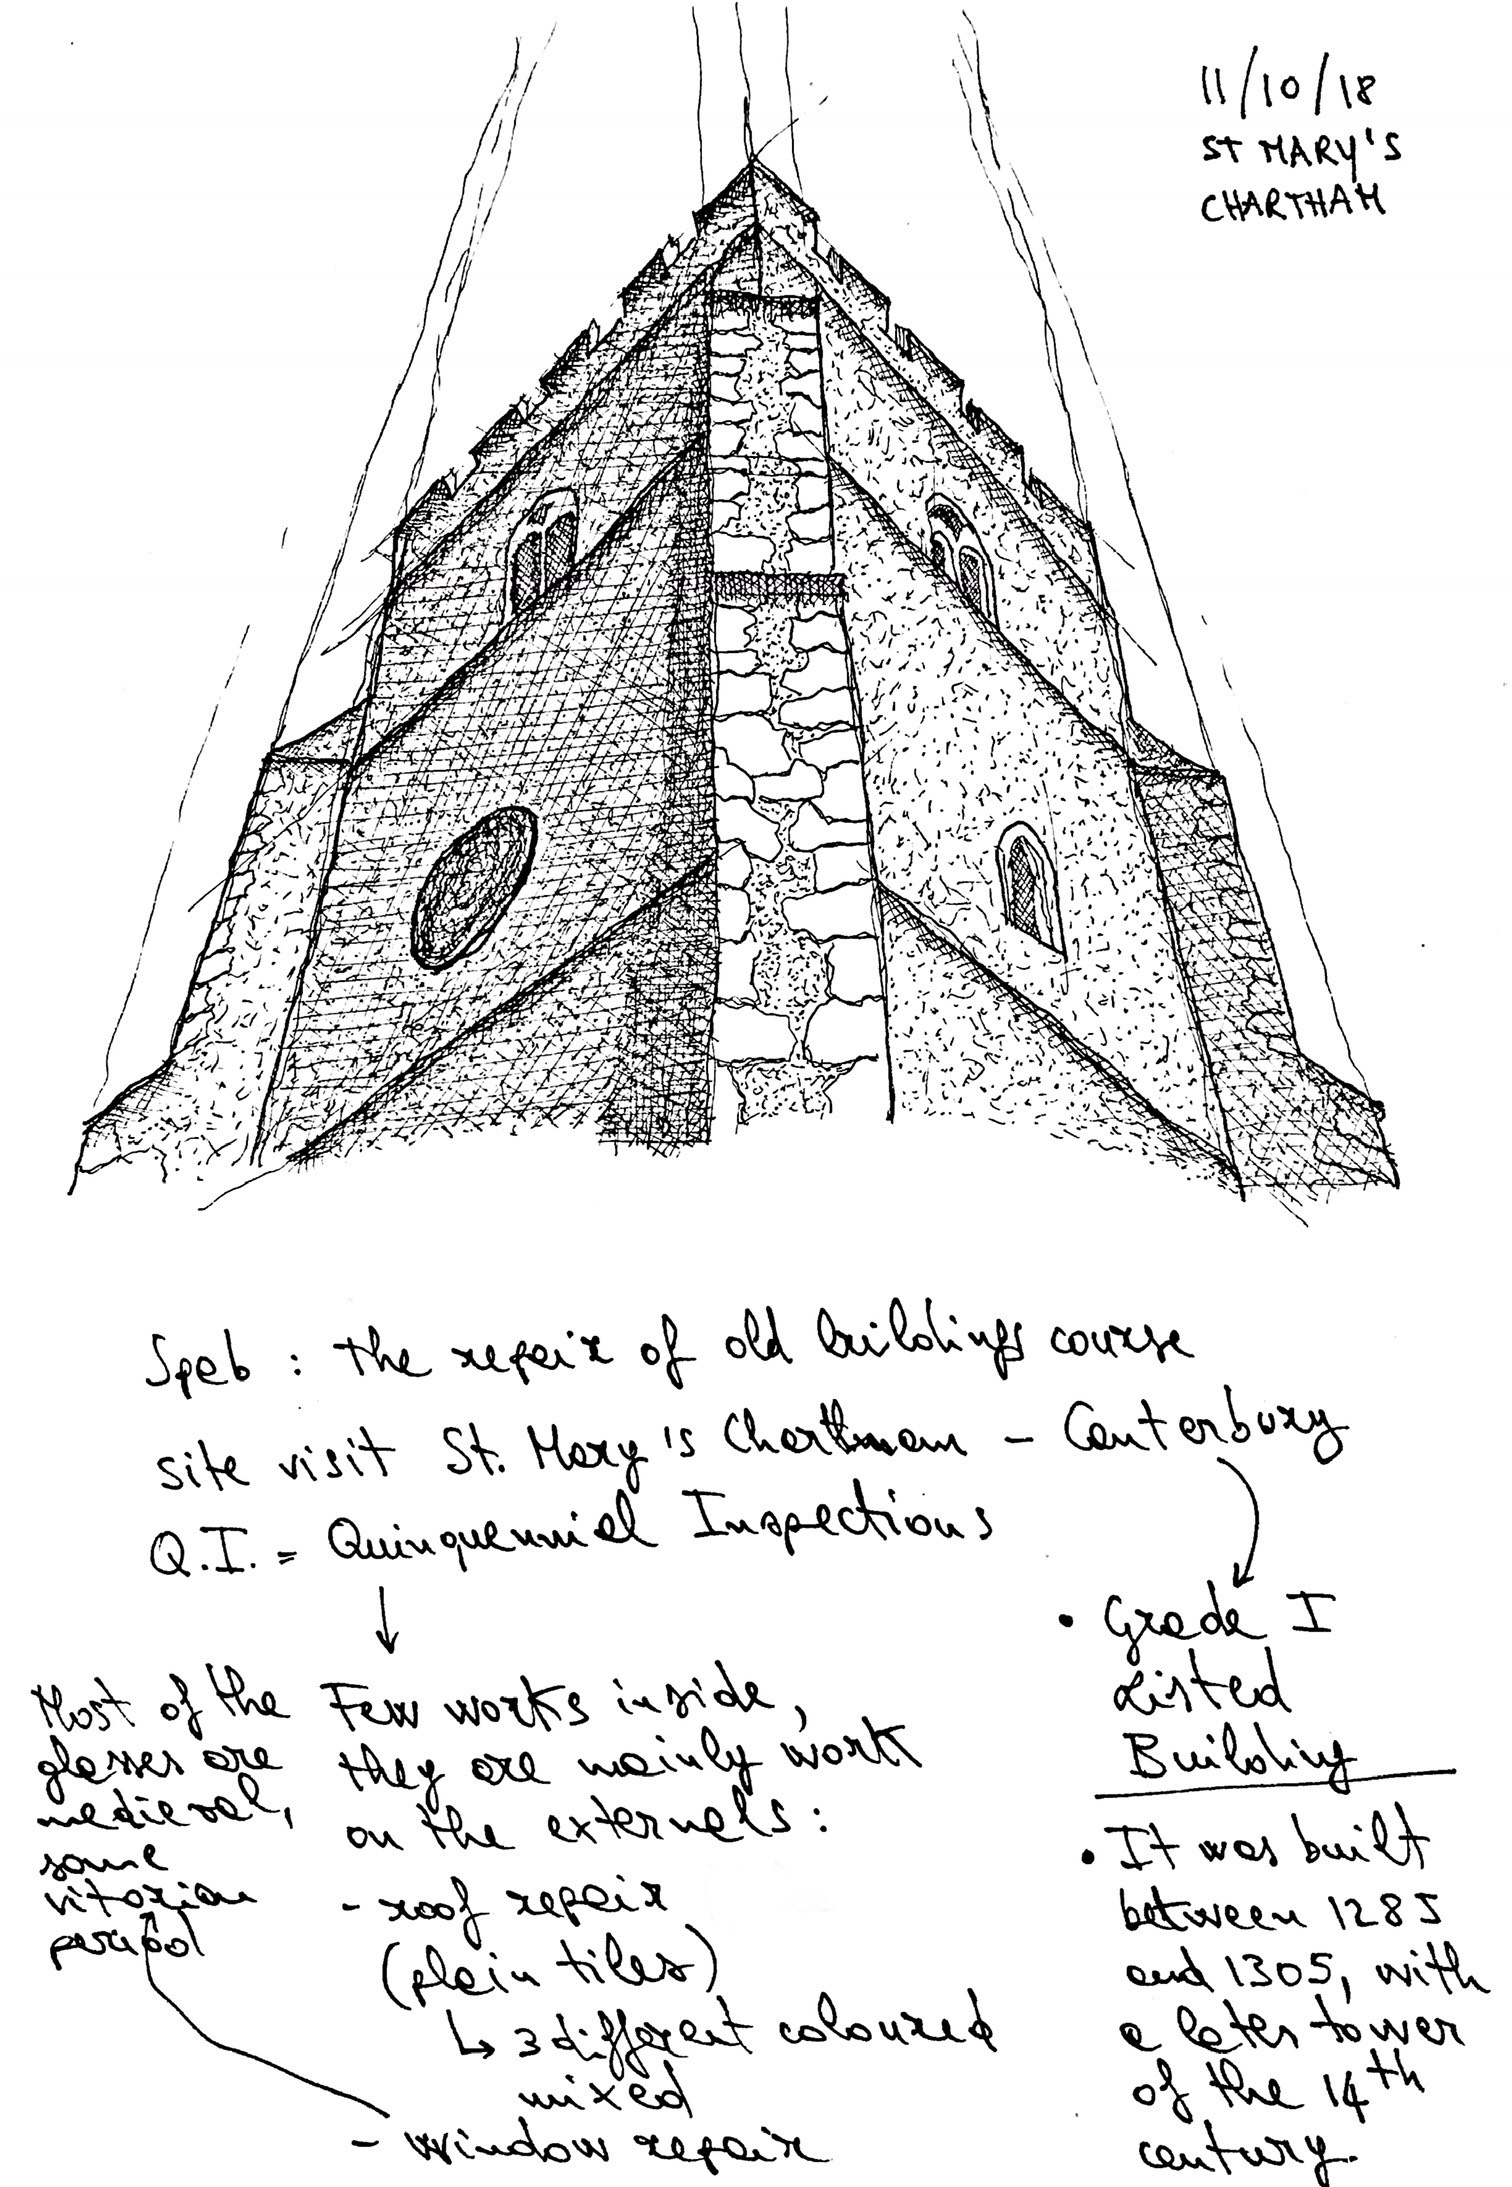 11/10/18
ST MARY'S
CHARTHAM
Spab : the repair of old buildings course
site visit St. Mary's Chartham - Canterbury
Q.I. = Quinquennial Inspections
Most of the
glasses are
medieval,
some
vitorian
period
Few works inside,
they are mainly work
on the externals:
- roof repair
(plain tiles)
↳ 3 different coloured
mixed
- window repair
• Grade I
Listed
Building
• It was built
between 1285
and 1305, with
a later tower
of the 14th
century.